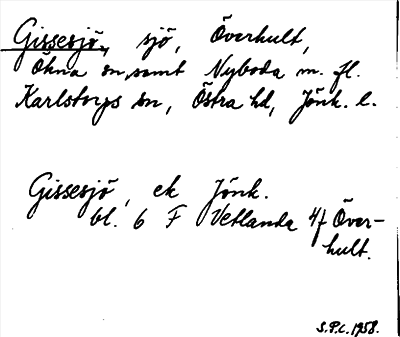 Gissesjö, sjö, Överhult,
Ökna sn, samt Nyboda m. fl.
Karlstorps sn, Östra hd, Jönk. l.
Gissesjö, ek Jönk.
bl. 6 F Vetlanda 47 Över-
hult.
S.P.C. 1958.